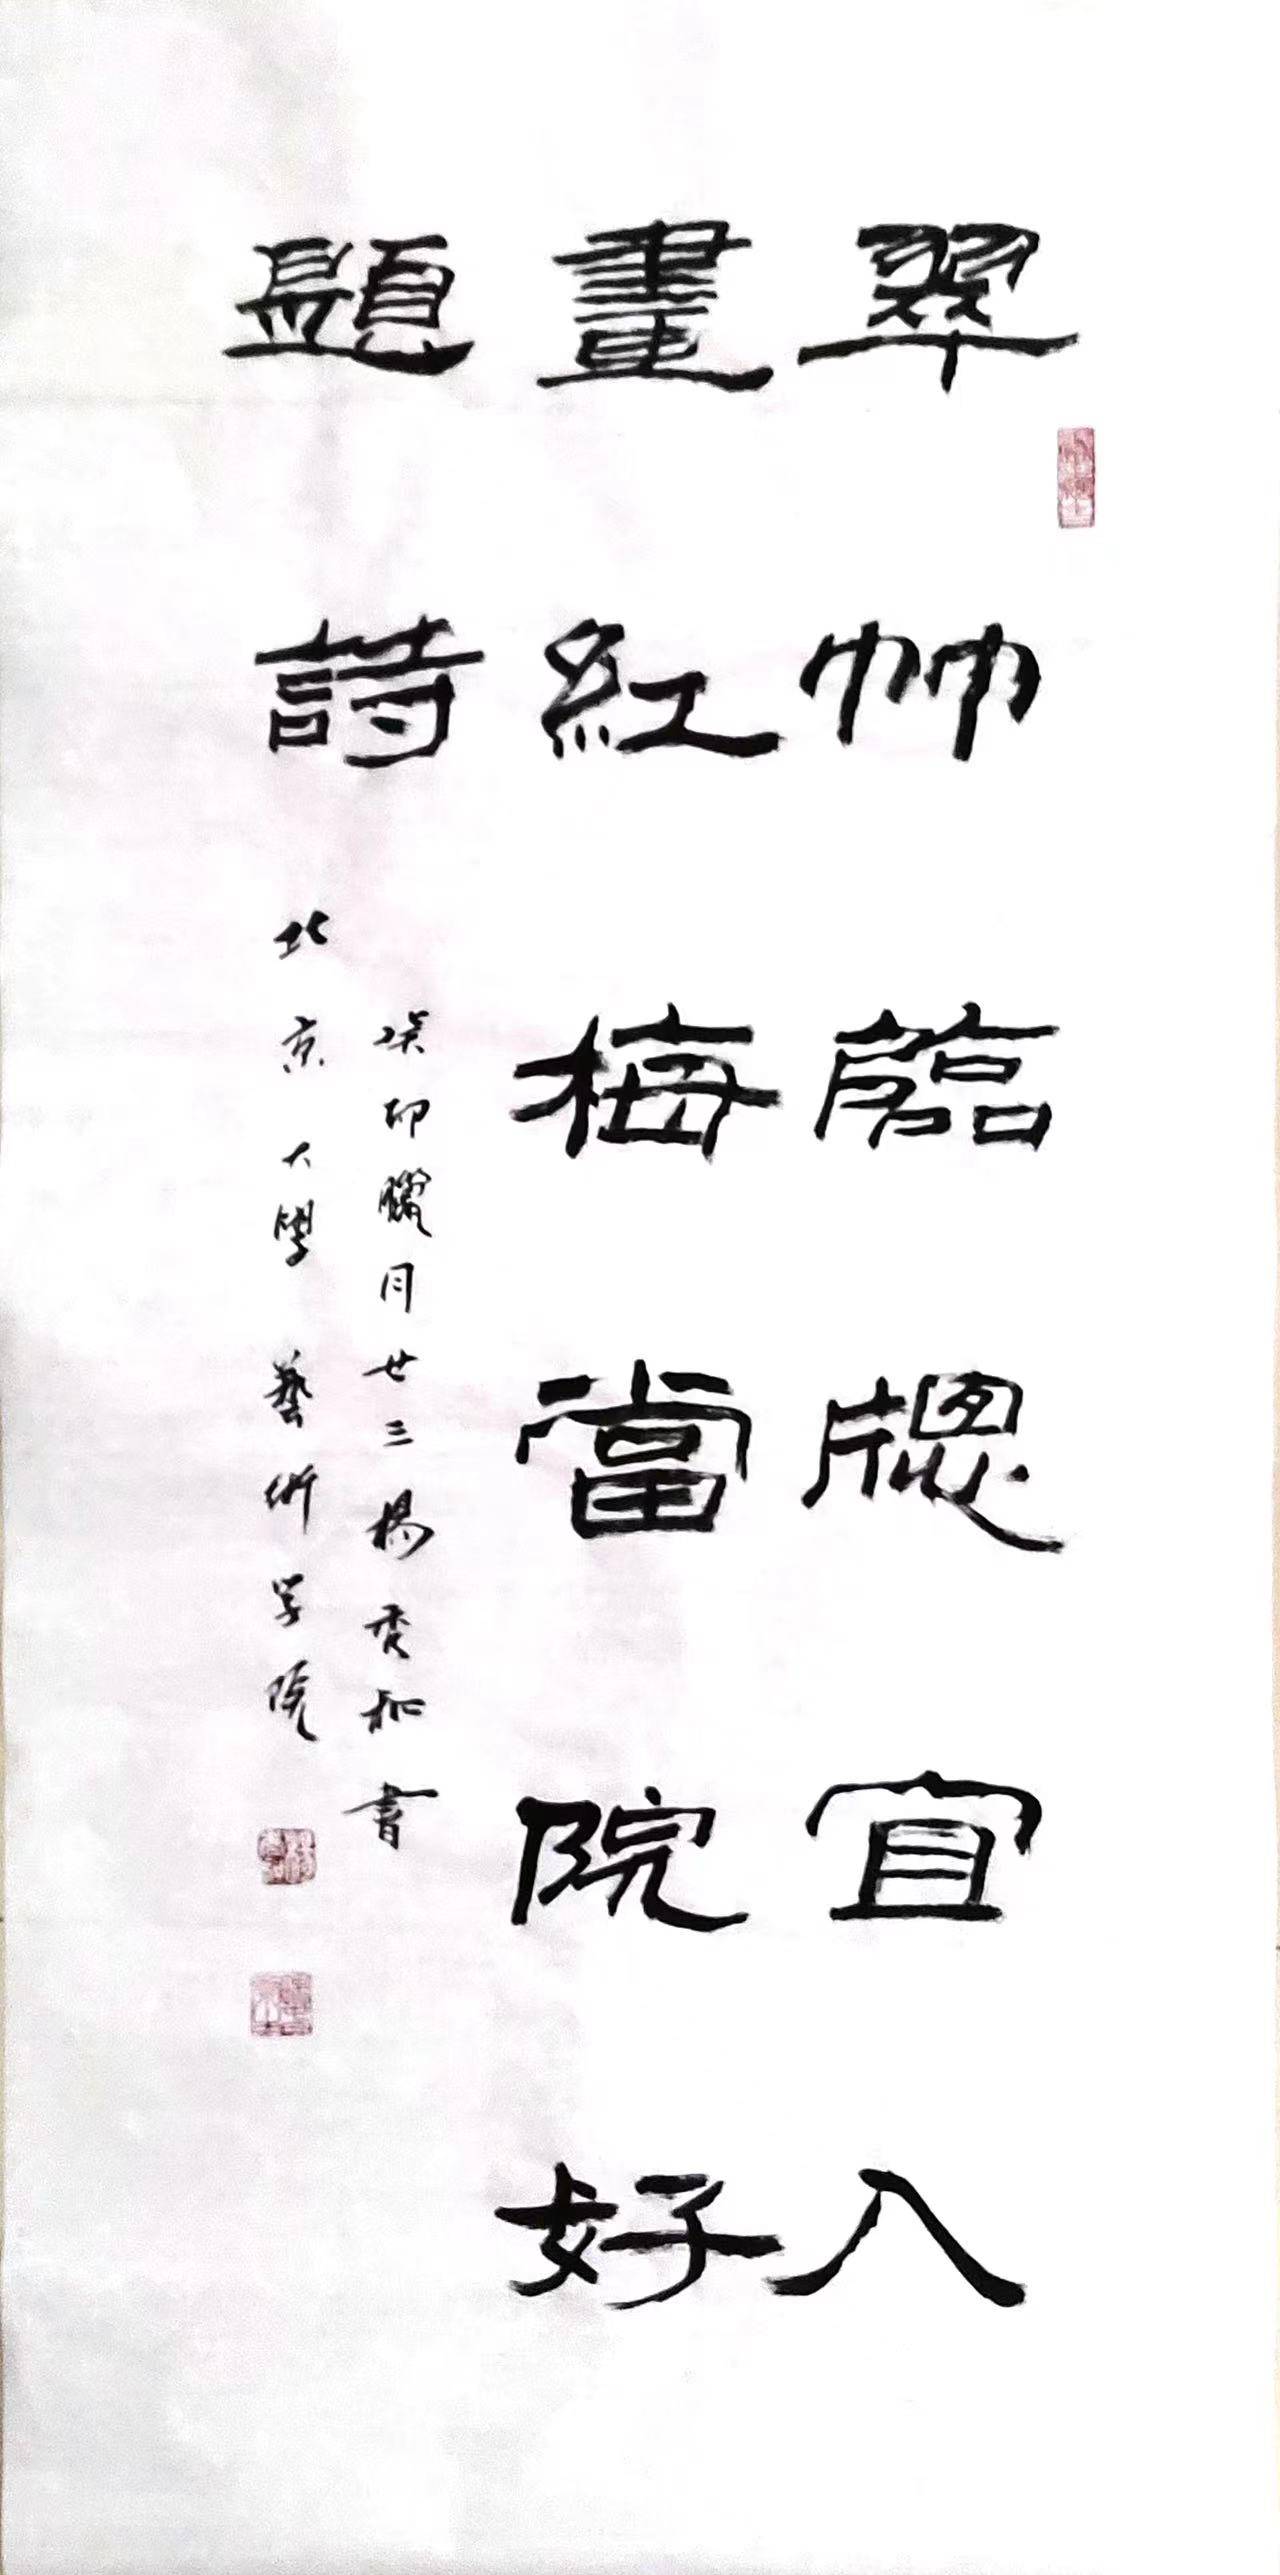 翠竹臨窻宜入
畫紅梅當院好
題詩
癸卯臘月廿三楊秀和書
北京大學藝術学院